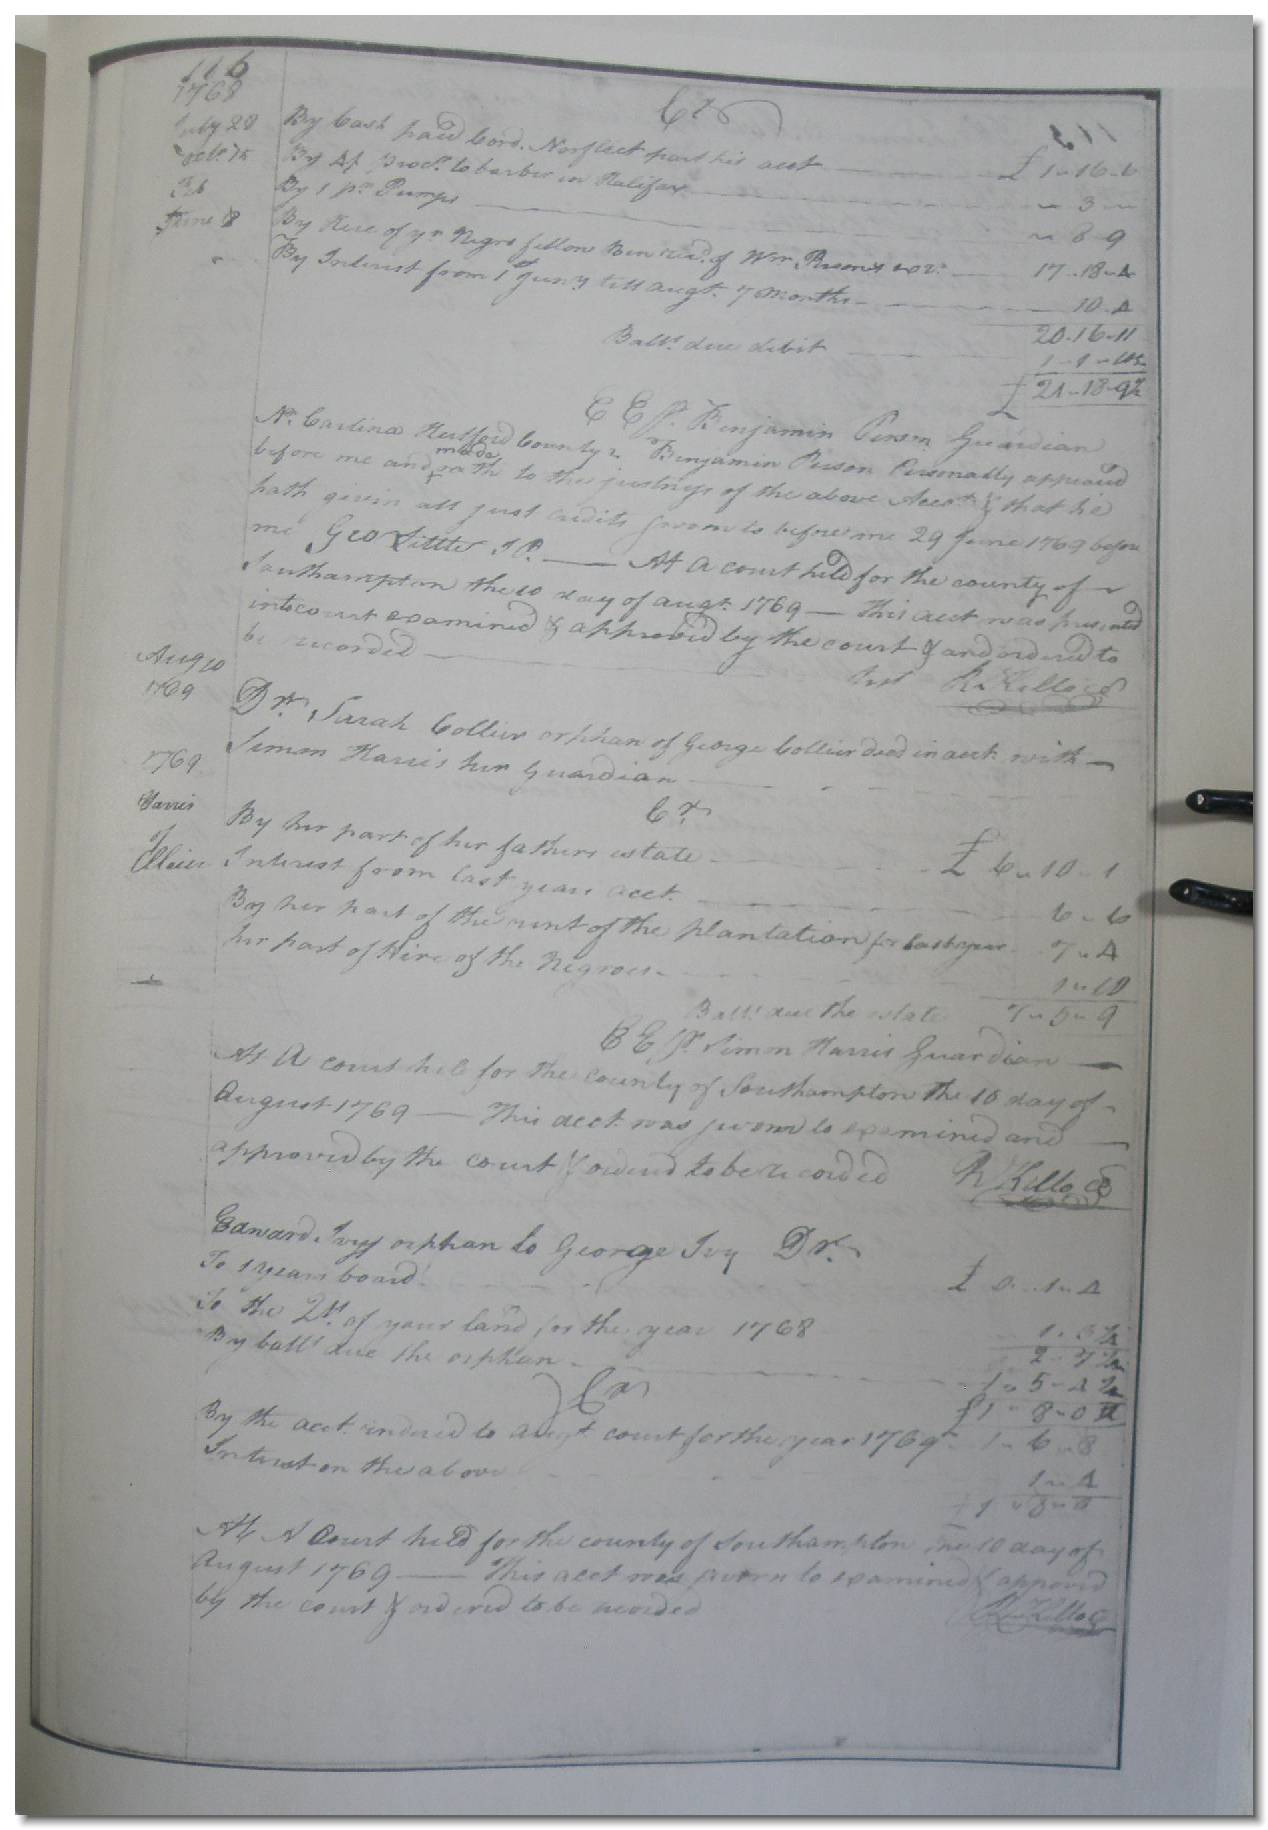 116
1768
Cr
July 28 By Cash paid Cord. Norfleet part his acct £ 1-16-6
Octr. 15 By Do. Procn. to barber in Halifax 3
By 1 pr. Pumps 8-9
June 8 By Hire of yr Negro fellow Ben recd. of Wm. Person 17-18-4
By Interest from 1st Jany till Augt. 7 Months 10-4
20-16-11
Balle. due debit 1-1-10½
£ 21-18-9½
E E Pr. Benjamin Person Guardian
No. Carlina Hertford County Benjamin Person Personally appeard
before me and made oath to the justness of the above Acct. & that he
hath given all just credits sworn to before me 29 June 1769 before
me Geo Little J P. — At A court held for the county of
Southampton the 10 day of augt. 1769 — This acct was presented
into court examined & approved by the court & and ordered to
be recorded Test R. Kello CC
Aug 10
1769
Dr. Sarah Collier orphan of George Collier decd in acct. with
1769 Simon Harris her Guardian
Cr.
Harris By her part of her fathers estate £ 6-10-1
of
Collier Interest from last years acct. 6-6
By her part of the rent of the plantation for last year 7-4
her part of Hire of the Negroes 1-10
Balle. due the estate 7-5-9
E E Pr Simon Harris Guardian
At A court held for the county of Southampton the 10 day of
August 1769 — This acct. was sworn to examined and
approved by the court & ordered to be recorded R Kello CC
Edward Ivy orphan to George Ivy Dr.
To 1 years board £ 0-1-4
To the Qt. of your land for the year 1768 1-3½
2-7½
By balle. due the orphan 1-5-4½
£ 1-8-0
Cr
By the acct. rendered to augt court for the year 1769 1-6-8
Interest on the above 1-4
£ 1-8-0
At A Court held for the county of Southampton the 10 day of
August 1769 — This acct was sworn to examined & approved
by the court & ordered to be recorded R. Kello CC